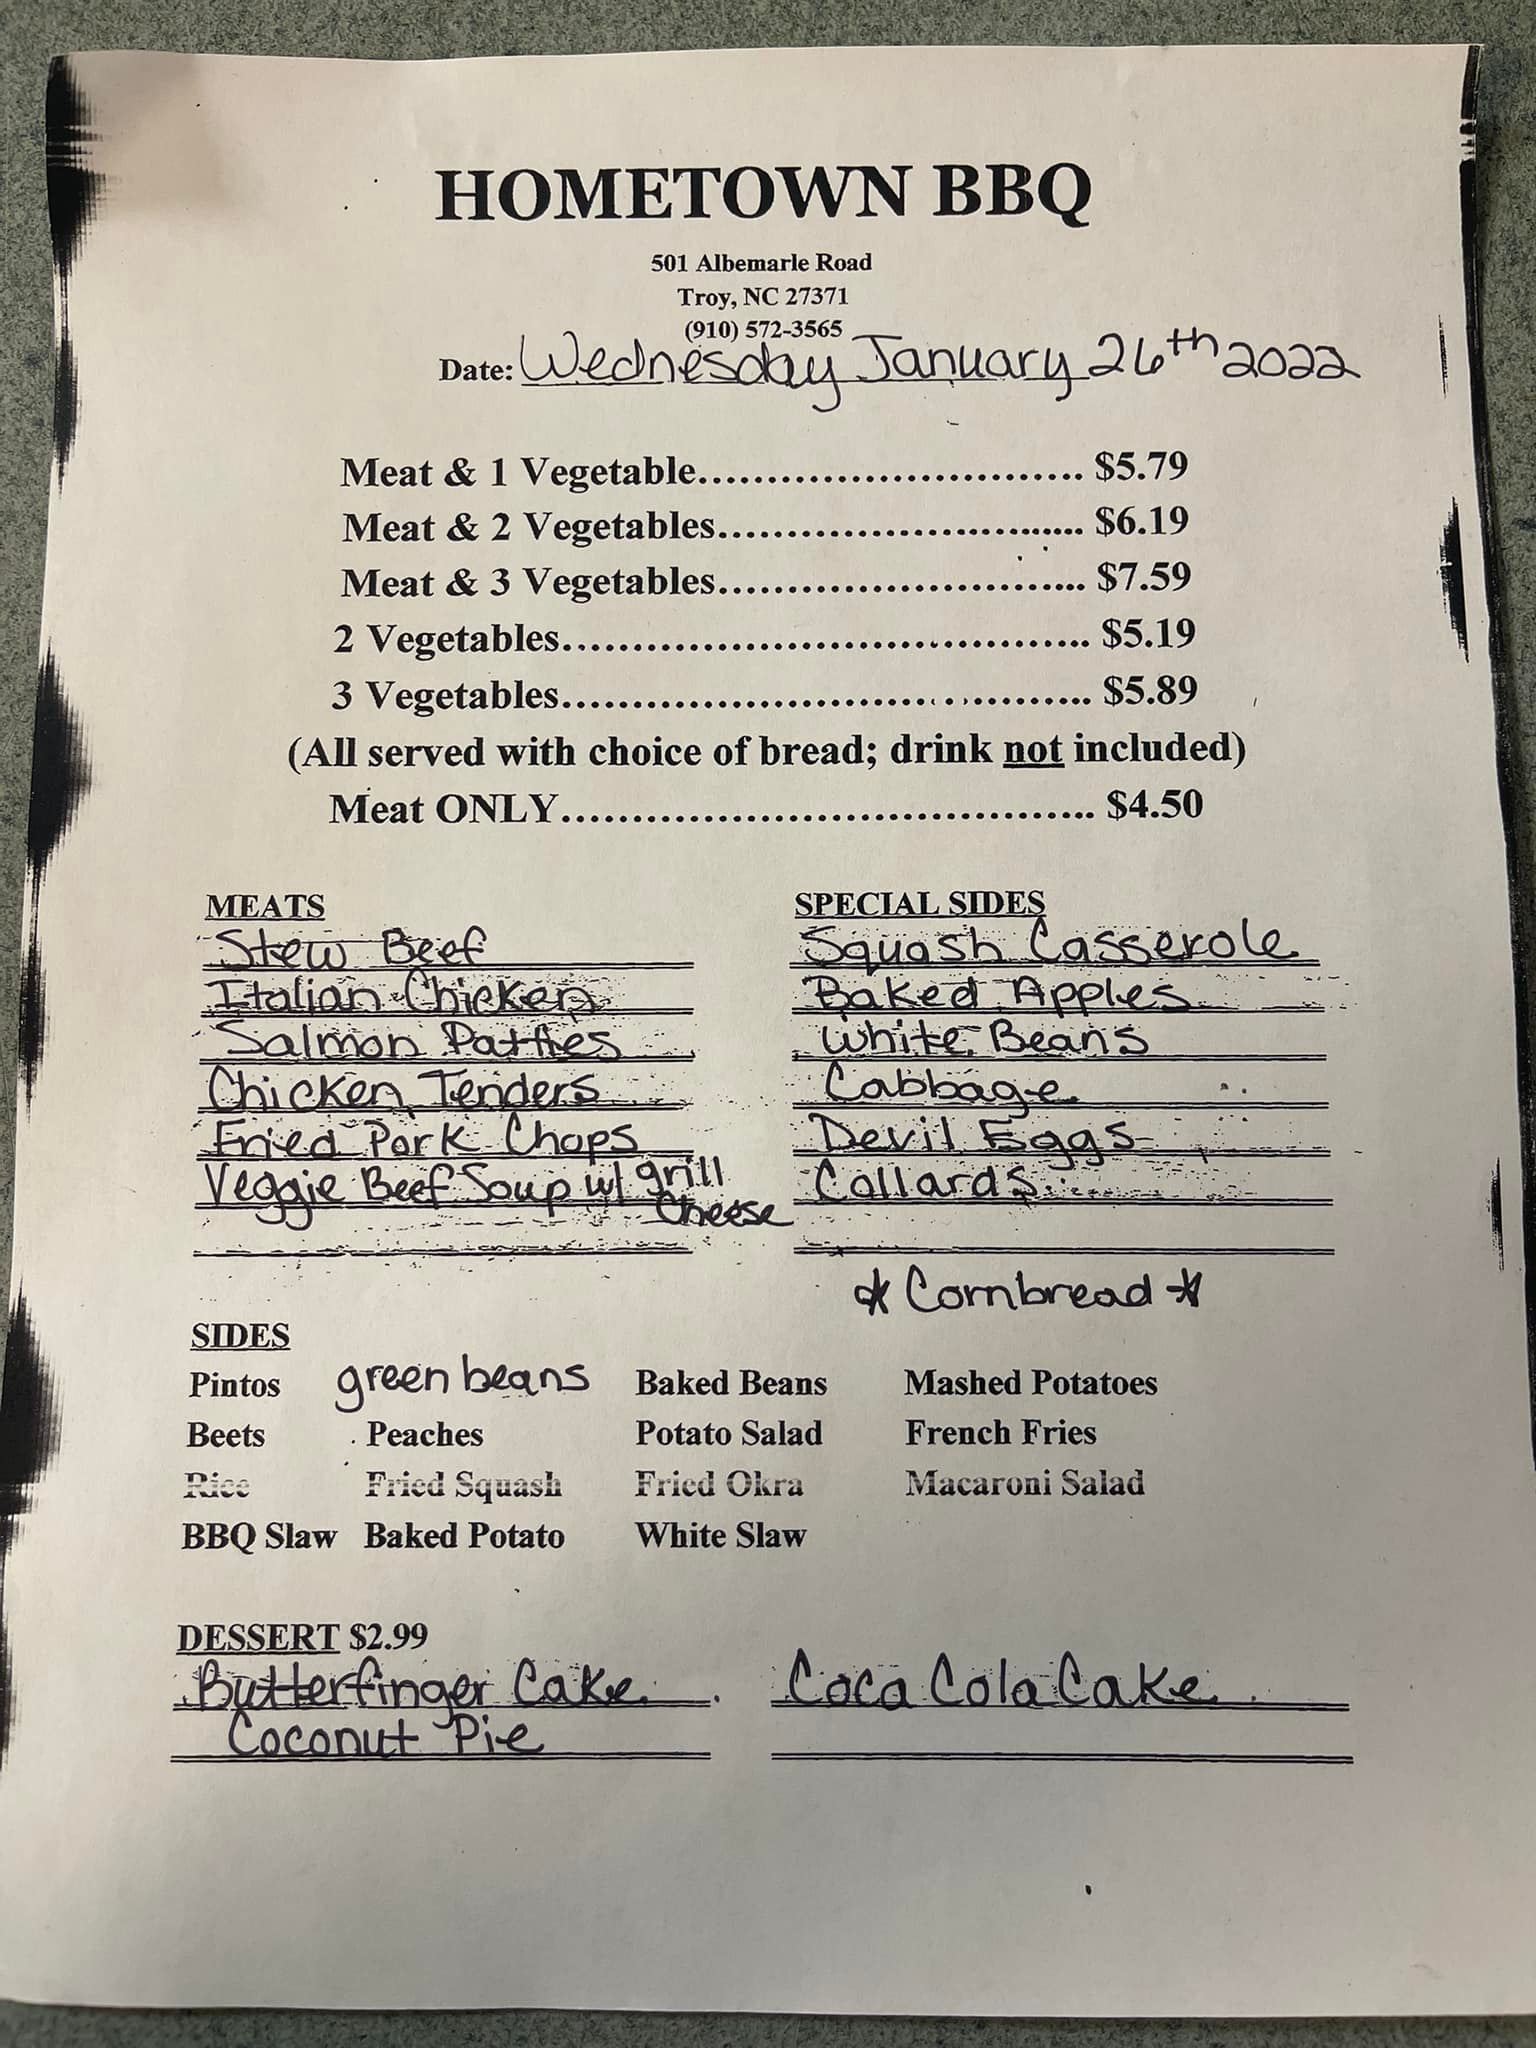 HOMETOWN BBQ
501 Albemarle Road
Troy, NC 27371
(910) 572-3565
Date: Wednesday January 26th 2022
Meat & 1 Vegetable.............................. $5.79
Meat & 2 Vegetables.............................. $6.19
Meat & 3 Vegetables.............................. $7.59
2 Vegetables.......................................... $5.19
3 Vegetables.......................................... $5.89
(All served with choice of bread; drink not included)
Meat ONLY.......................................... $4.50
MEATS
Stew Beef
Italian Chicken
Salmon Patties
Chicken Tenders
Fried Pork Chops
Veggie Beef Soup w/ grill
cheese
SPECIAL SIDES
Squash Casserole
Baked Apples
White Beans
Cabbage
Devil Eggs
Collards
* Cornbread *
SIDES
Pintos green beans Baked Beans Mashed Potatoes
Beets Peaches Potato Salad French Fries
Rice Fried Squash Fried Okra Macaroni Salad
BBQ Slaw Baked Potato White Slaw
DESSERT $2.99
Butterfinger Cake Coca Cola Cake
Coconut Pie